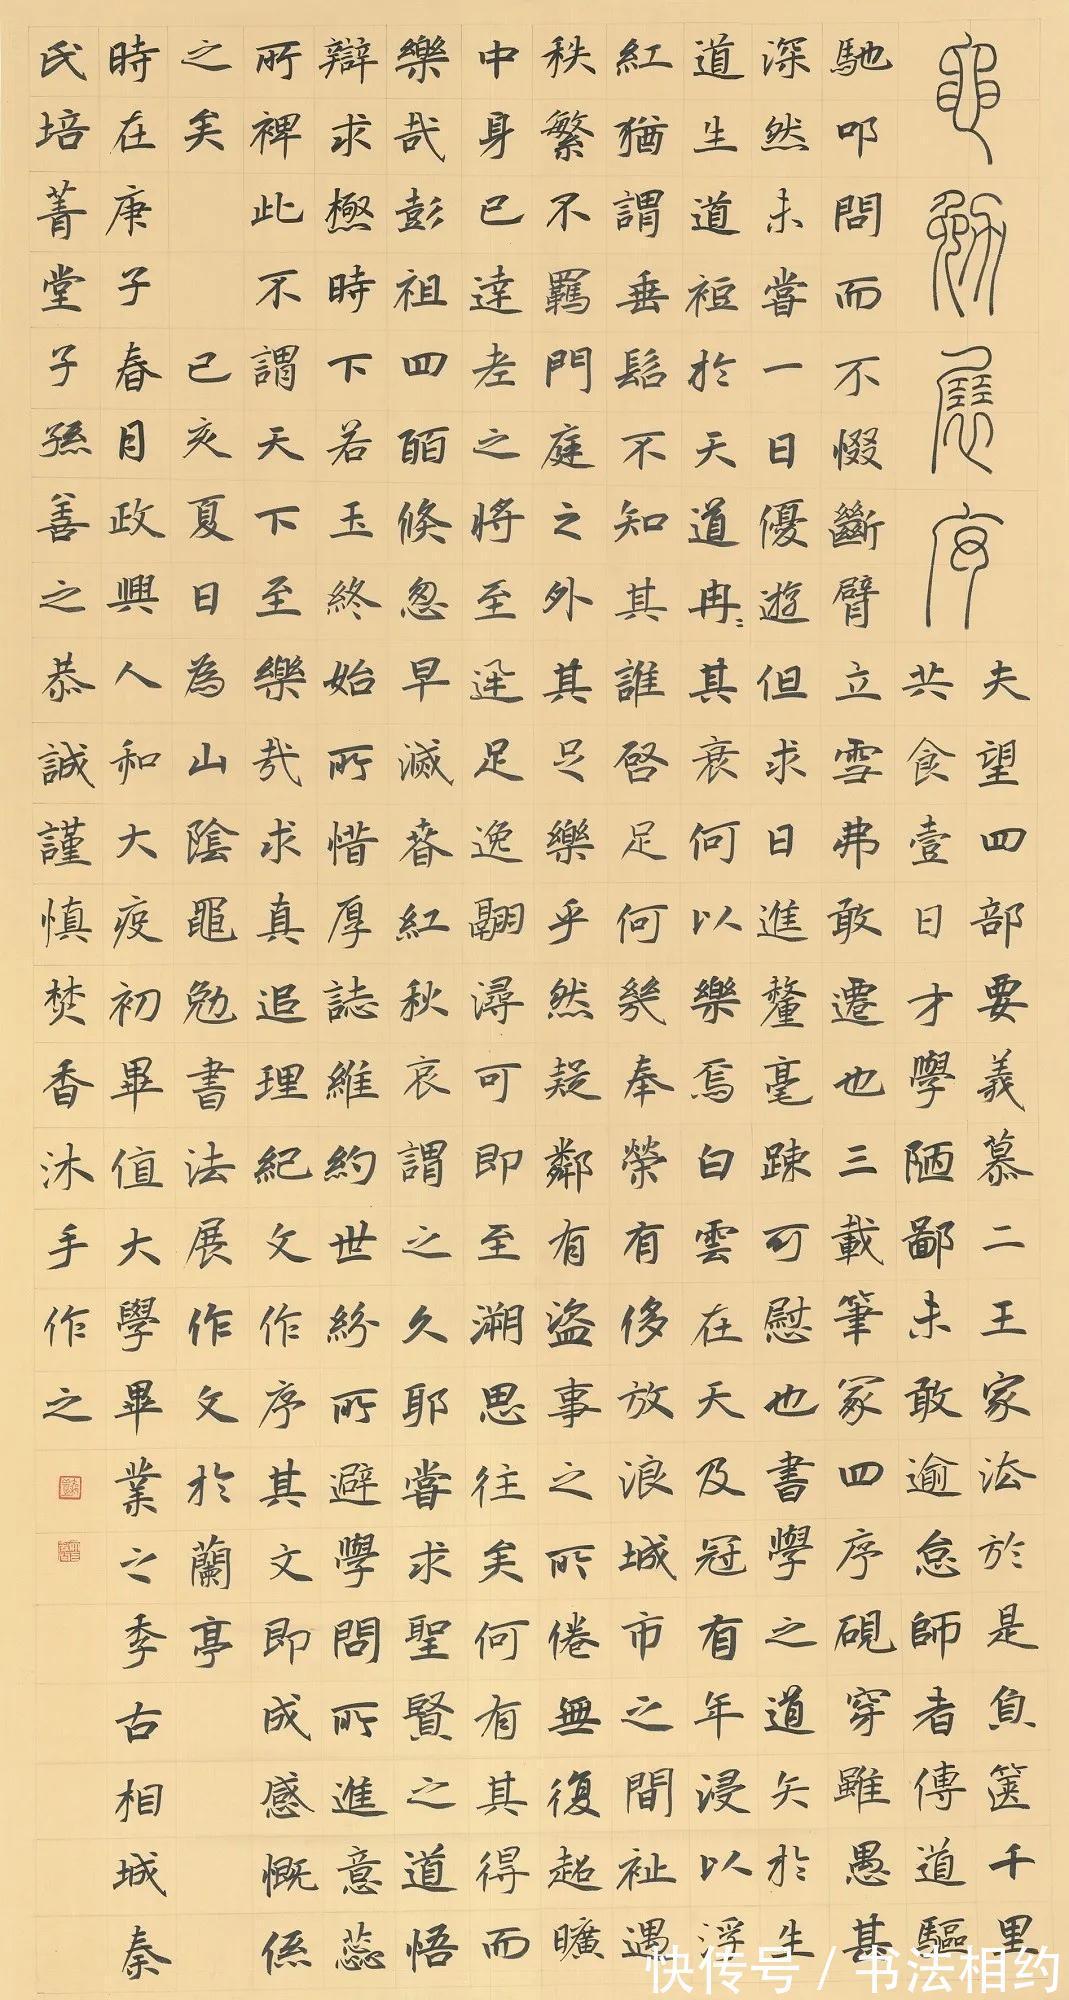 黽勉展序
夫望四部要義慕二王家法於是負篋千里
共食壹日才學陋鄙未敢逾怠師者傳道驅
馳叩問而不惙斷臂立雪弗敢遷也三載筆冢四序硯穿雖愚甚
深然未嘗一日優遊但求日進釐毫踈可慰也書學之道矢於生
道生道於天道冉〻其衰何以樂焉白雲在天及冠有年浸以浮
紅猶謂垂髫不知其誰啓足何幾奉榮有侈放浪城市之間祉遇
秩繁不羈門庭之外其足樂乎然疑鄰有盜事之所倦無復超曠
中身已達老之將至足逸翮潯可即至溯思往矣何有其得而
樂哉彭祖四百倏忽早滅春紅秋哀謂之久耶嘗求聖賢之道悟
辯求極時下若玉終始所惜厚誌維約世紛所避學問所進意蕊
所裨此不謂天下至樂哉求真追理紀文作序其文即成感慨係
之矣 己亥夏日為山陰黽勉書法展作文於蘭亭
時在庚子春月政興人和大疫初畢值大學畢業之季古相城秦
氏培菁堂子孫善之恭誠謹慎焚香沐手作之
快传号/书法相约